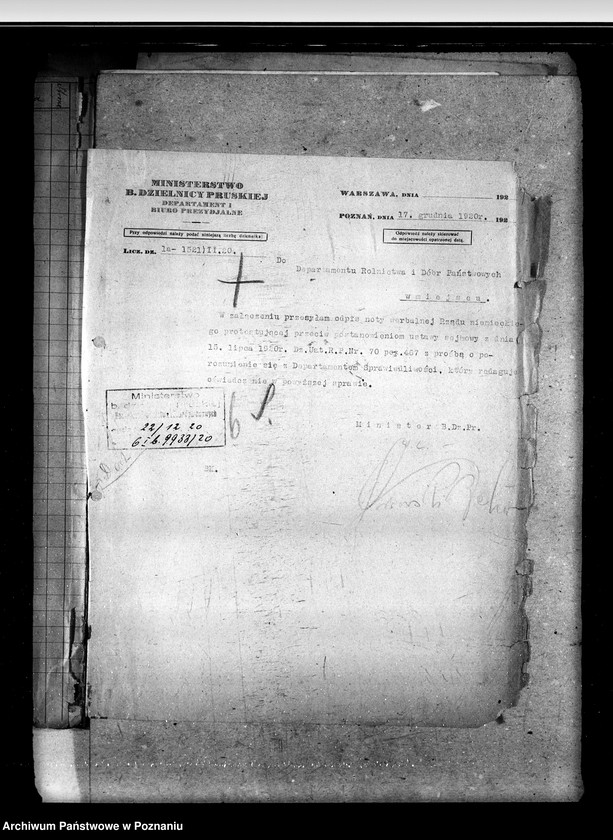 MINISTERSTWO
B. DZIELNICY PRUSKIEJ
DEPARTAMENT I
BIURO PREZYDJALNE
WARSZAWA, DNIA 192
POZNAŃ, DNIA 17. grudnia 1920r. 192
Przy odpowiedzi należy podać niniejszą liczbę dziennika!
Odpowiedź należy skierować
do miejscowości opatrzonej datą.
LICZ. DZ. Ia- 1521)II.20.
Do
Departamentu Rolnictwa i Dóbr Państwowych
w miejscu.
W załączeniu przesyłam odpis noty werbalnej Rządu niemieckie-
go protestującej przeciw postanowieniom ustawy sejmowy z dnia
15. lipca 1920r. Dz.Ust.R.P.Nr. 70 poz.467 z prośbą o po-
rozumienie się z Departamentem Sprawiedliwości, który redaguje
oświadczenie w powyższej sprawie.
Ministerstwo
22/12 20
6 I b. 9933/20
Minister B.Dz.Pr.
BK.
Archiwum Państwowe w Poznaniu